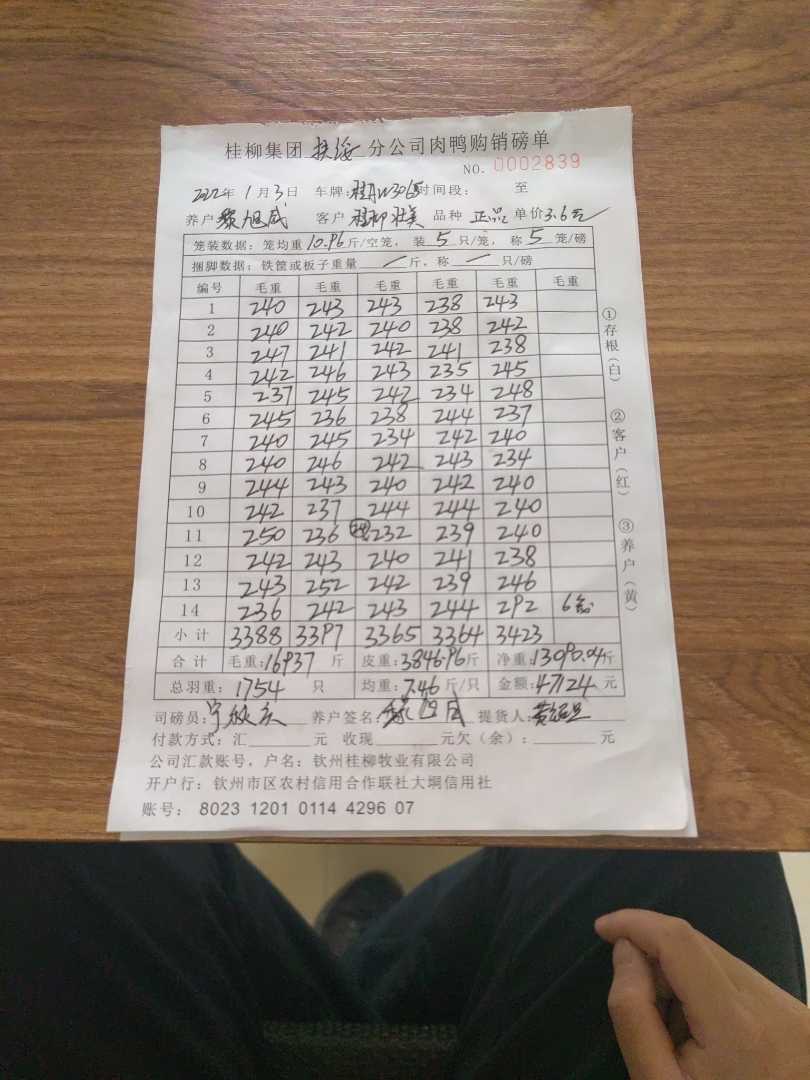 桂柳集团 扶绥 分公司肉鸭购销磅单
NO. 0002839
2022年 1月3日 车牌:桂AW3065 时间段: 至
养户 黎旭成 客户 桂柳壮美 品种 正品 单价3.6元
笼装数据: 笼均重 10.96 斤/空笼, 装 5 只/笼, 称 5 笼/磅
捆脚数据: 铁筐或板子重量 / 斤, 称 / 只/磅
编号 毛重 毛重 毛重 毛重 毛重 毛重
1 240 243 243 238 243
2 240 242 240 238 242
3 247 241 242 241 238
4 242 246 243 235 245
5 237 245 242 234 248
6 245 236 238 244 237
7 240 245 234 242 240
8 240 246 242 243 234
9 244 243 240 242 240
10 242 237 244 244 240
11 250 236 232 239 240
12 242 243 240 241 238
13 243 252 242 239 246
14 236 242 243 244 292 6
小计 3388 3397 3365 3364 3423
合计 毛重:16937 斤 皮重:3846.96斤 净重:13090.04斤
总羽重: 1754 只 均重: 7.46 斤/只 金额: 47124 元
司磅员: 养户签名: 提货人:
付款方式: 汇 元 收现 元欠(余): 元
公司汇款账号, 户名: 钦州桂柳牧业有限公司
开户行: 钦州市区农村信用合作联社大垌信用社
账号: 8023 1201 0114 4296 07
①存根(白)
②客户(红)
③养户(黄)